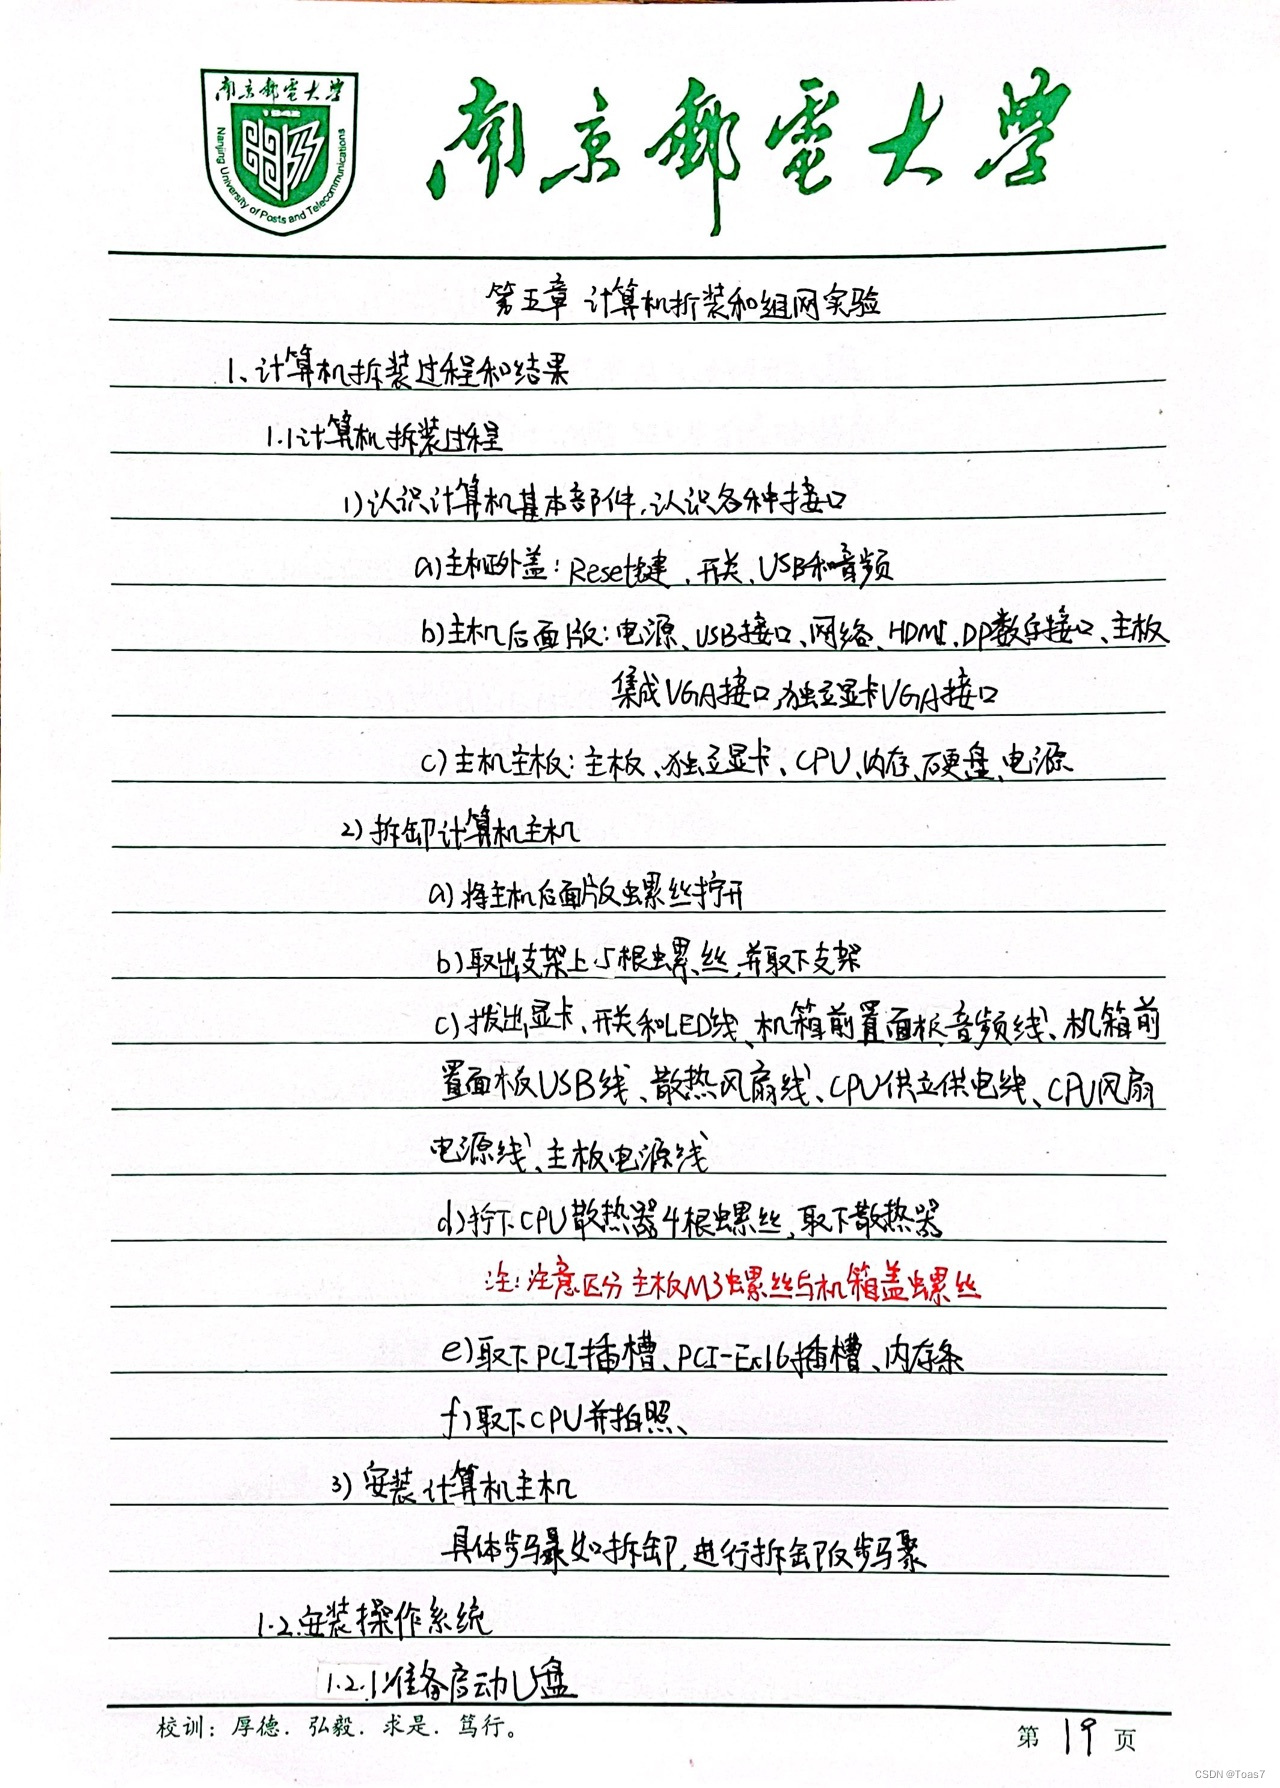 南京郵電大學
Nanjing University of Posts and Telecommunications
南京郵電大學
第五章 计算机折装和组网实验
1、计算机拆装过程和结果
1.1计算机拆装过程
1)认识计算机基本部件,认识各种接口
a)主机外盖:Reset键、开关、USB和音频
b)主机后面版:电源、USB接口、网络、HDMI、DP数字接口、主板
集成VGA接口,独立显卡VGA接口
c)主机主板:主板、独立显卡、CPU、内存、硬盘、电源
2)拆卸计算机主机
a)将主机后面版螺丝拧开
b)取出支架上5根螺丝,并取下支架
c)拨出显卡、开关和LED线、机箱前置面板音频线、机箱前
置面板USB线、散热风扇线、CPU供立供电线、CPU风扇
电源线、主板电源线
d)拧下CPU散热器4根螺丝,取下散热器
注:注意区分主板M3螺丝与机箱盖螺丝
e)取下PCI插槽、PCI-Ex16插槽、内存条
f)取下CPU并拍照、
3)安装计算机主机
具体步骤如拆卸,进行拆卸反步骤
1.2.安装操作系统
1.2.1准备启动U盘
校训:厚德.弘毅.求是.笃行。
第 19 页
CSDN @Toas7